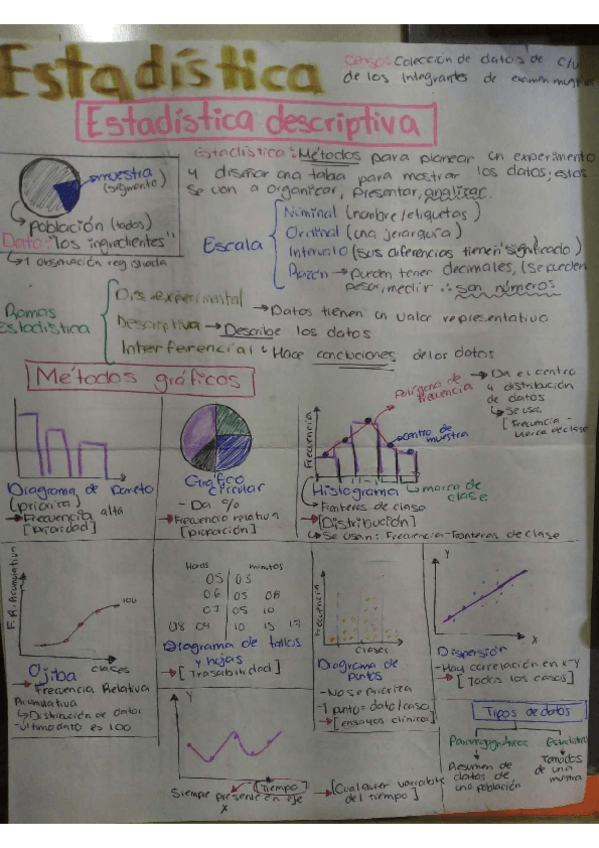 Estadística
Censo: Colección de datos de c/u
de los integrantes de
Estadística descriptiva
muestra
(segmento)
Población (todos)
Dato: "los ingredientes"
1 observación registrada
Estadística: Métodos para planear un experimento
y diseñar una tabla para mostrar los datos; estos
se van a organizar, presentar, analizar.
Escala
Nominal (nombre/etiquetas)
Ordinal (una jerarquía)
Intervalo (sus diferencias tienen significado)
Razón → Pueden tener decimales, (se pueden
pesar, medir ∴ son números
Ramas
Estadística
Dis. experimental
→ Datos tienen un valor representativo
Descriptiva → Describe los datos
Interferencial: Hace conclusiones de los datos
Métodos gráficos
Diagrama de Pareto
(prioriza)
→ Frecuencia alta
[prioridad]
Gráfico
circular
- Da %
→ Frecuencia relativa
Frecuencia
Polígono de
frecuencia
centro de
muestra
→ Da el centro
y distribución
de datos
↳ Se usa
[Frecuencia -
marca de clase
Histograma
marca de
clase
- Fronteras de clase
→ [Distribución]
↳ Se usan: Frecuencia - Fronteras de clase
F. R. Acumulativa
100
clases
Ojiba
→ Frecuencia Relativa
Acumulativa
↳ Distribución de datos
- último dato es 100
Horas minutos
05 | 03
06 | 05 08
07 | 05 10
09 | 10 15
Diagrama de tallos
y hojas
→ [Trasabilidad]
Frecuencia
clases
Diagrama de
puntos
- No se prioriza
- 1 punto = dato/caso
→ [ensayos clínicos]
Y
X
Dispersión
- Hay correlación en x-y
→ [Todos los casos]
Y
[tiempo]
Siempre presente en eje
X
→ [Cualquier variable
del tiempo]
Tipos de datos
Resumen de
datos de
una población
Tomados
de una
muestra